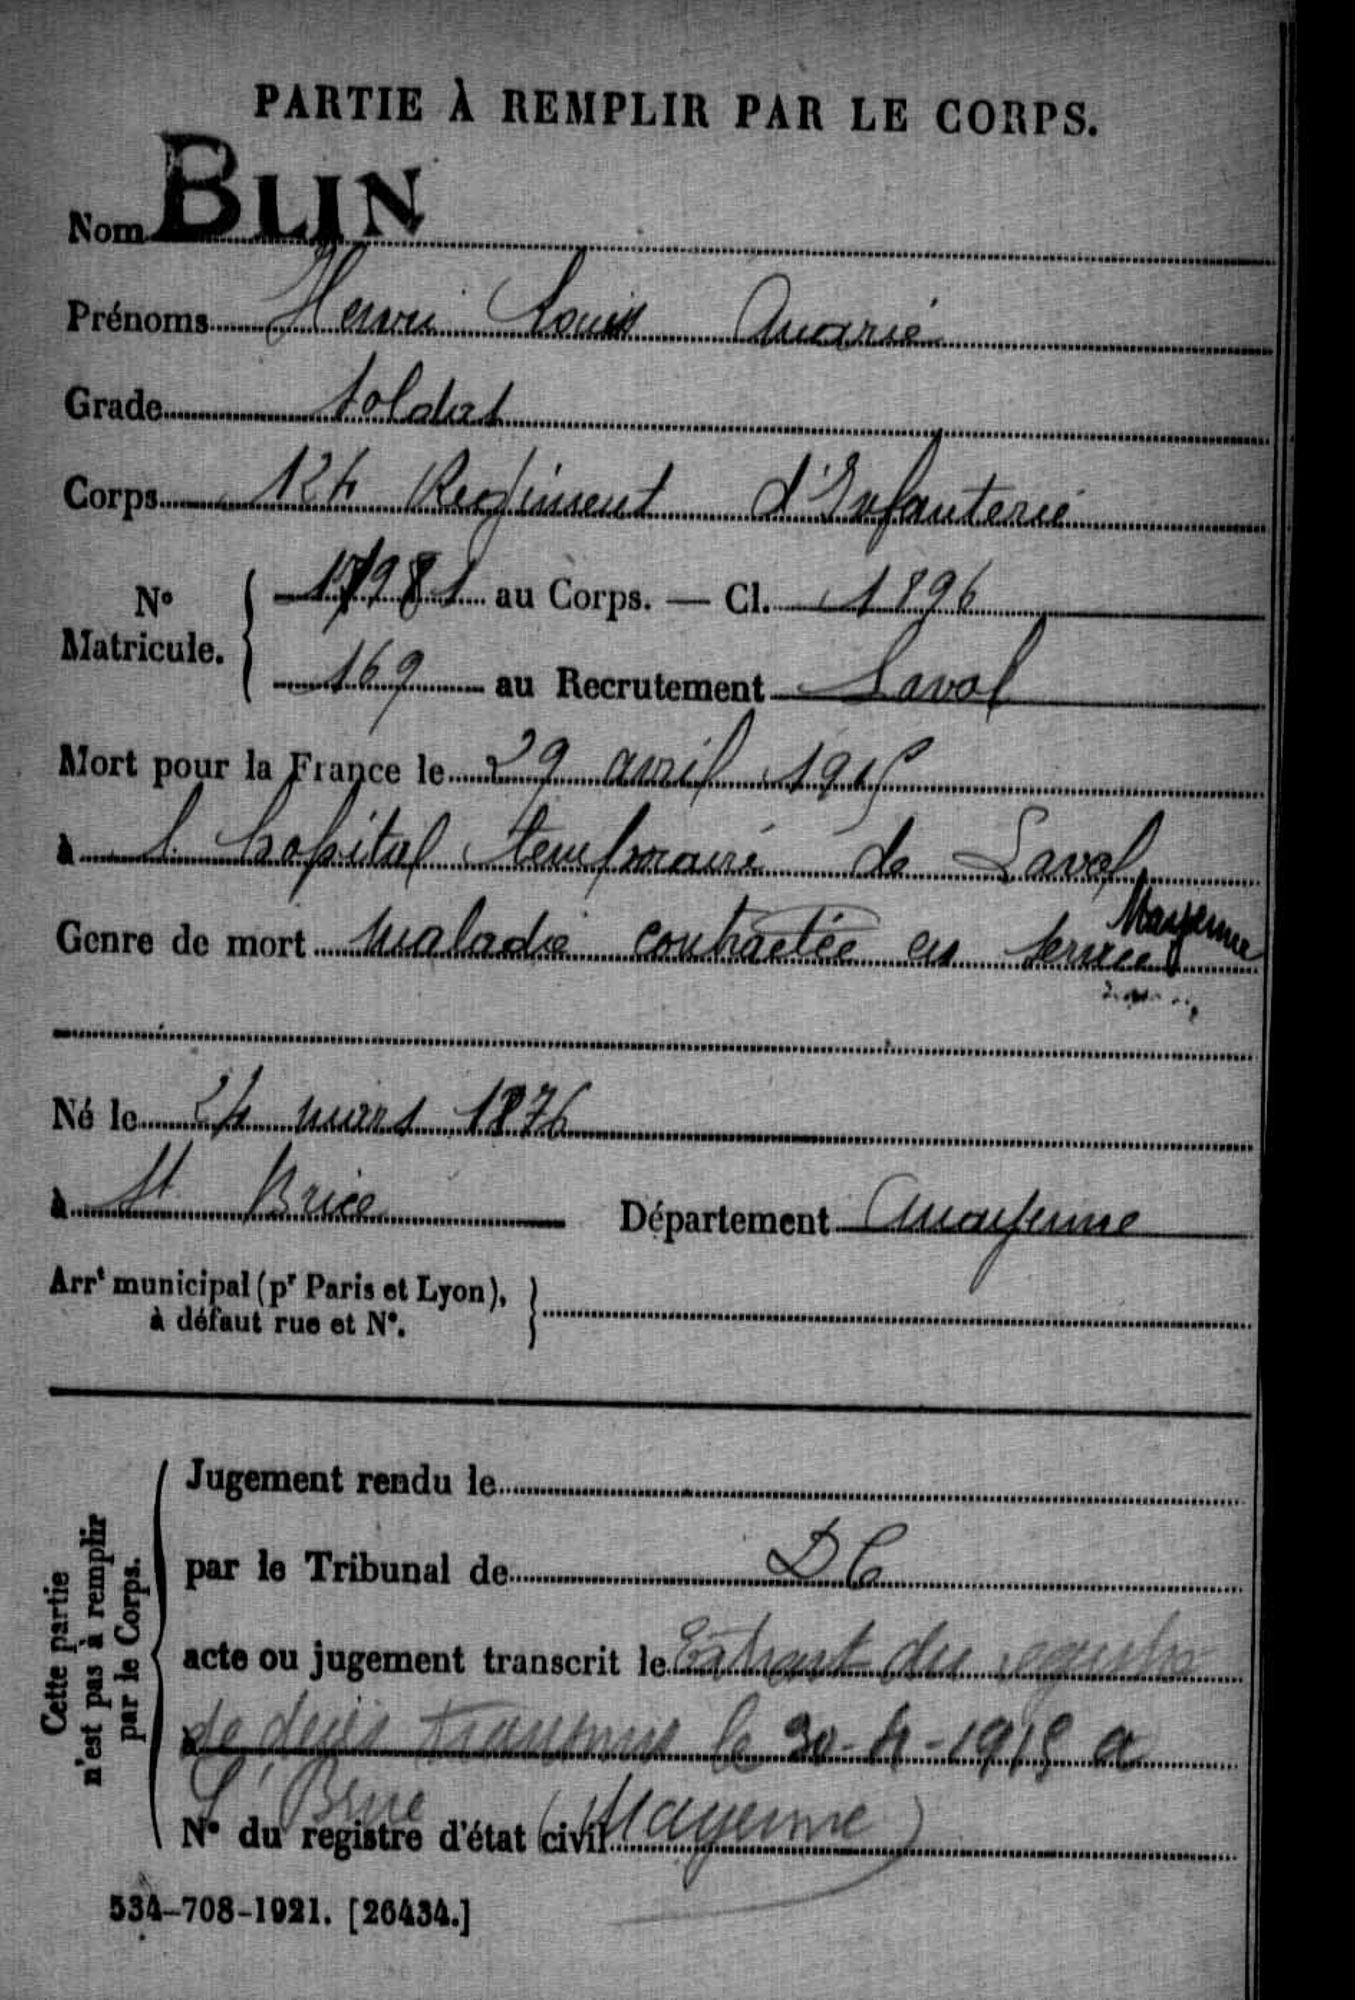 PARTIE À REMPLIR PAR LE CORPS.
Nom BLIN
Prénoms Henri Louis Marie
Grade soldat
Corps 124 Régiment d'Infanterie
N° Matricule. { au Corps. — Cl. 1896
169 au Recrutement Laval
Mort pour la France le 29 avril 1915
à l'hopital temporaire de Laval
Mayenne
Genre de mort maladie contractée en service
Né le 24 mars 1876
à St Brice Département Mayenne
Arrt municipal (pr Paris et Lyon), }
à défaut rue et N°.
Cette partie
n'est pas à remplir
par le Corps.
Jugement rendu le
par le Tribunal de DC
acte ou jugement transcrit le Extrait du registre
de décès transmis le 30-4-1915 a
St Brice (Mayenne)
N° du registre d'état civil
534-708-1921. [26434.]